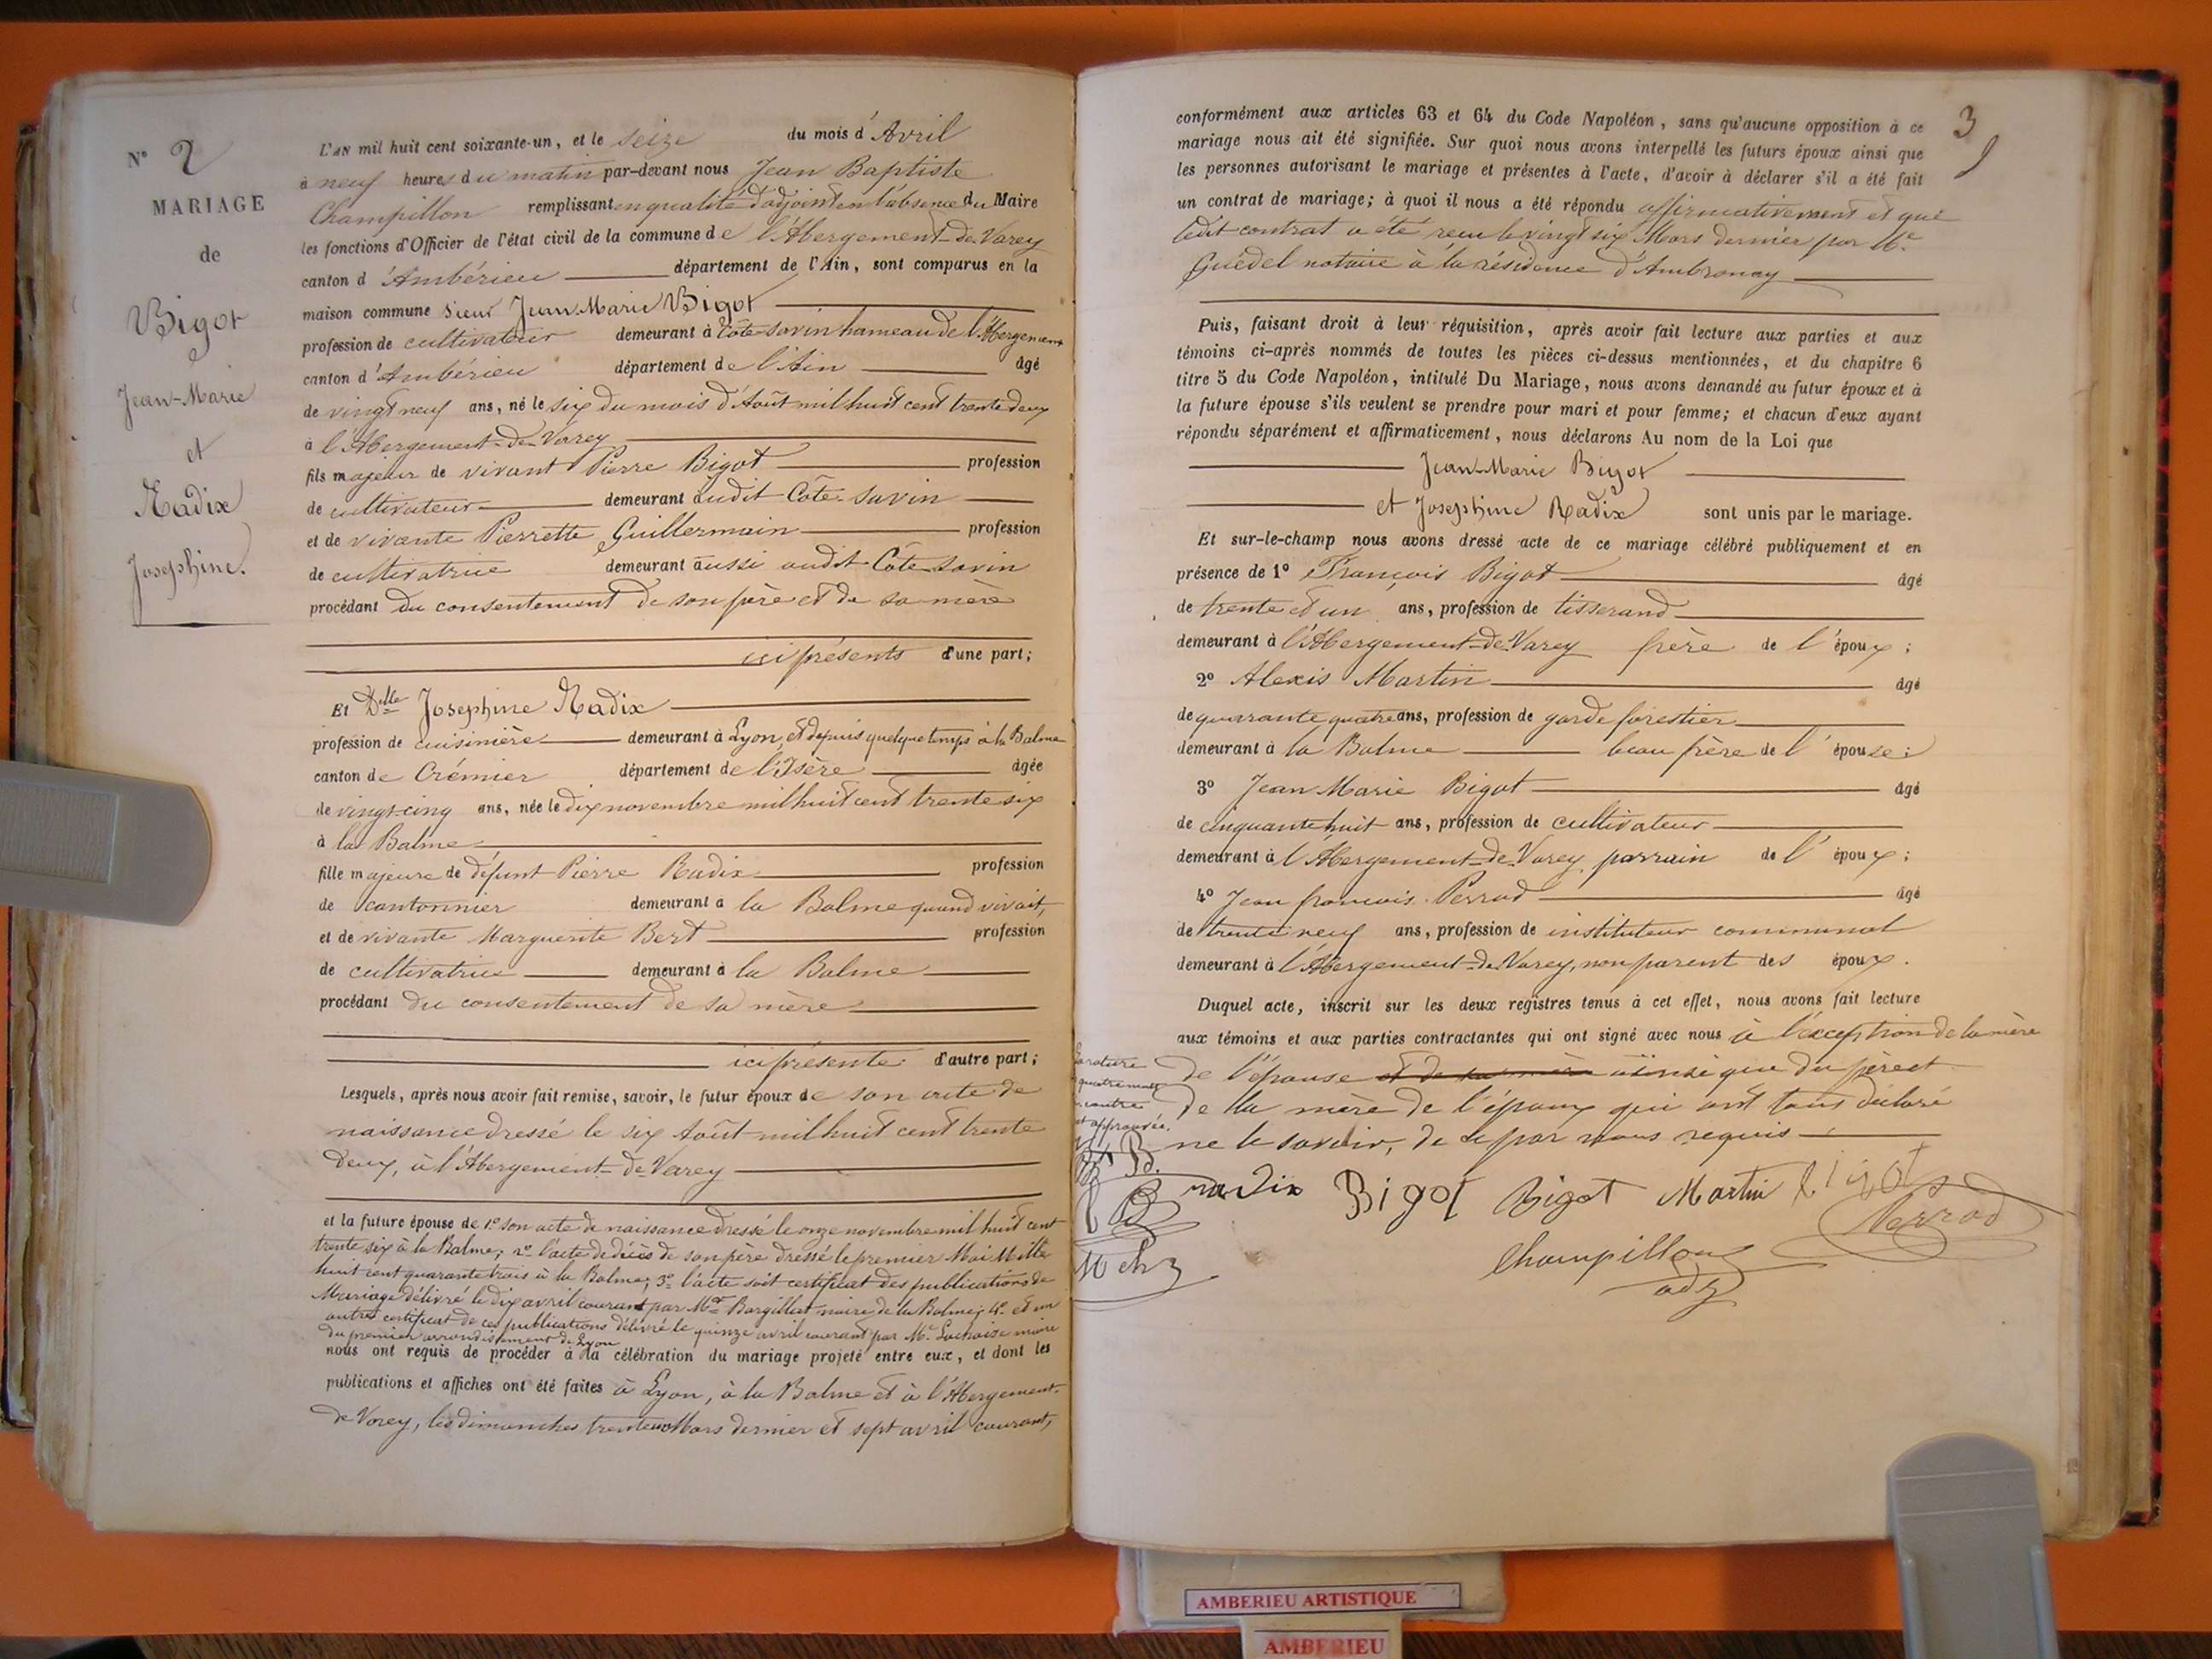 N° 2
MARIAGE
de
Bigot
Jean-Marie
et
Radix
Josephine.
L'AN mil huit cent soixante-un, et le seize du mois d'Avril
à neuf heures du matin par-devant nous Jean Baptiste
Champillon remplissant en qualité d'adjoint en l'absence du Maire
les fonctions d'Officier de l'état civil de la commune de l'Abergement-de-Varey
canton d'Ambérieu département de l'Ain, sont comparus en la
maison commune Sieur Jean Marie Bigot
profession de cultivateur demeurant à Côte-savin hameau de l'Abergement
canton d'Ambérieu département de l'Ain âgé
de vingt neuf ans, né le six du mois d'Août mil huit cent trente deux
à l'Abergement-de-Varey
fils majeur de vivant Pierre Bigot profession
de cultivateur demeurant audit Côte-savin
et de vivante Pierrette Guillermain profession
de cultivatrice demeurant aussi audit Côte-savin
procédant du consentement de son père et de sa mère
ici présents d'une part;
Et Delle Josephine Radix
profession de cuisinière demeurant à Lyon, et depuis quelque temps à la Balme
canton de Crémier département de l'Isère âgée
de vingt-cinq ans, née le dix novembre mil huit cent trente six
à la Balme
fille majeure de défunt Pierre Radix profession
de cantonnier demeurant à la Balme quand vivait,
et de vivante Marguerite Bert profession
de cultivatrice demeurant à la Balme
procédant du consentement de sa mère
ici présente d'autre part;
Lesquels, après nous avoir fait remise, savoir, le futur époux de son acte de
naissance dressé le six Août mil huit cent trente
deux, à l'Abergement-de-Varey
et la future épouse de 1° son acte de naissance dressé le onze novembre mil huit cent
trente six à la Balme; 2° l'acte de décès de son père dressé le premier Mai Mille
huit cent quarante trois à la Balme; 3° l'acte soit certificat des publications de
Mariage délivré le dix avril courant par Mr Bargillat maire de la Balme; 4° et un
autre certificat de ces publications délivré le quinze avril courant par Mr maire
du premier arrondissement de Lyon
nous ont requis de procéder à la célébration du mariage projeté entre eux, et dont les
publications et affiches ont été faites à Lyon, à la Balme et à l'Abergement-
de Varey, les dimanches trente un Mars dernier et sept avril courant,
3
conformément aux articles 63 et 64 du Code Napoléon, sans qu'aucune opposition à ce
mariage nous ait été signifiée. Sur quoi nous avons interpellé les futurs époux ainsi que
les personnes autorisant le mariage et présentes à l'acte, d'avoir à déclarer s'il a été fait
un contrat de mariage; à quoi il nous a été répondu affirmativement et que
ledit contrat a été reçu le vingt six Mars dernier par Me
Guédel notaire à la résidence d'Ambronay
Puis, faisant droit à leur réquisition, après avoir fait lecture aux parties et aux
témoins ci-après nommés de toutes les pièces ci-dessus mentionnées, et du chapitre 6
titre 5 du Code Napoléon, intitulé Du Mariage, nous avons demandé au futur époux et à
la future épouse s'ils veulent se prendre pour mari et pour femme; et chacun d'eux ayant
répondu séparément et affirmativement, nous déclarons Au nom de la Loi que
Jean-Marie Bigot
et Josephine Radix sont unis par le mariage.
Et sur-le-champ nous avons dressé acte de ce mariage célébré publiquement et en
présence de 1° François Bigot âgé
de trente et un ans, profession de tisserand
demeurant à l'Abergement-de-Varey frère de l'époux;
2° Alexis Martin âgé
de quarante quatre ans, profession de garde forestier
demeurant à la Balme beau frère de l'épouse;
3° Jean Marie Bigot âgé
de cinquante huit ans, profession de cultivateur
demeurant à l'Abergement-de-Varey, parrain de l'époux;
4° Jean françois Perrod âgé
de trente neuf ans, profession de instituteur communal
demeurant à l'Abergement-de-Varey, non parent des époux.
Duquel acte, inscrit sur les deux registres tenus à cet effet, nous avons fait lecture
aux témoins et aux parties contractantes qui ont signé avec nous à l'exception de la mère
de l'épouse et de sa mère ainsi que du père et
de la mère de l'époux qui ont tous déclaré
ne le savoir, de ce par nous requis
rature
quatre mots
contre
et approuvée.
radix Bigot Bigot Martin bigot
Perrod
Champillon
adj
AMBERIEU ARTISTIQUE
AMBERIEU